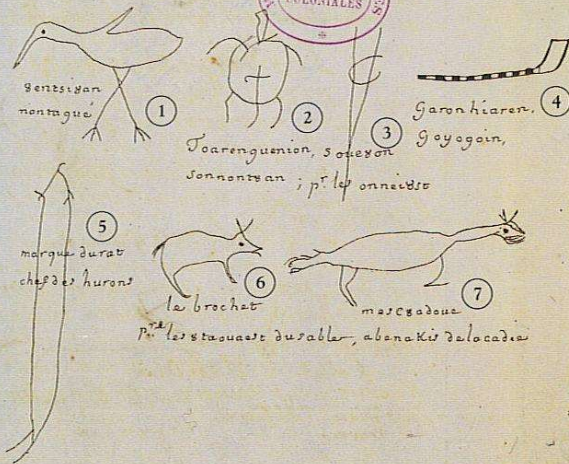 COLONIALES
8entsi8an
nontagué
1
2
3
4
Toarenguenion, so8e8on
sonnont8an ; pr. les onnei8st
Garonhiaren,
Goyogoin,
5
marque du rat
chef des hurons
6
7
le brochet
mesc8adoue
pre. les 8taouaest du sable, abenakis de lacadie